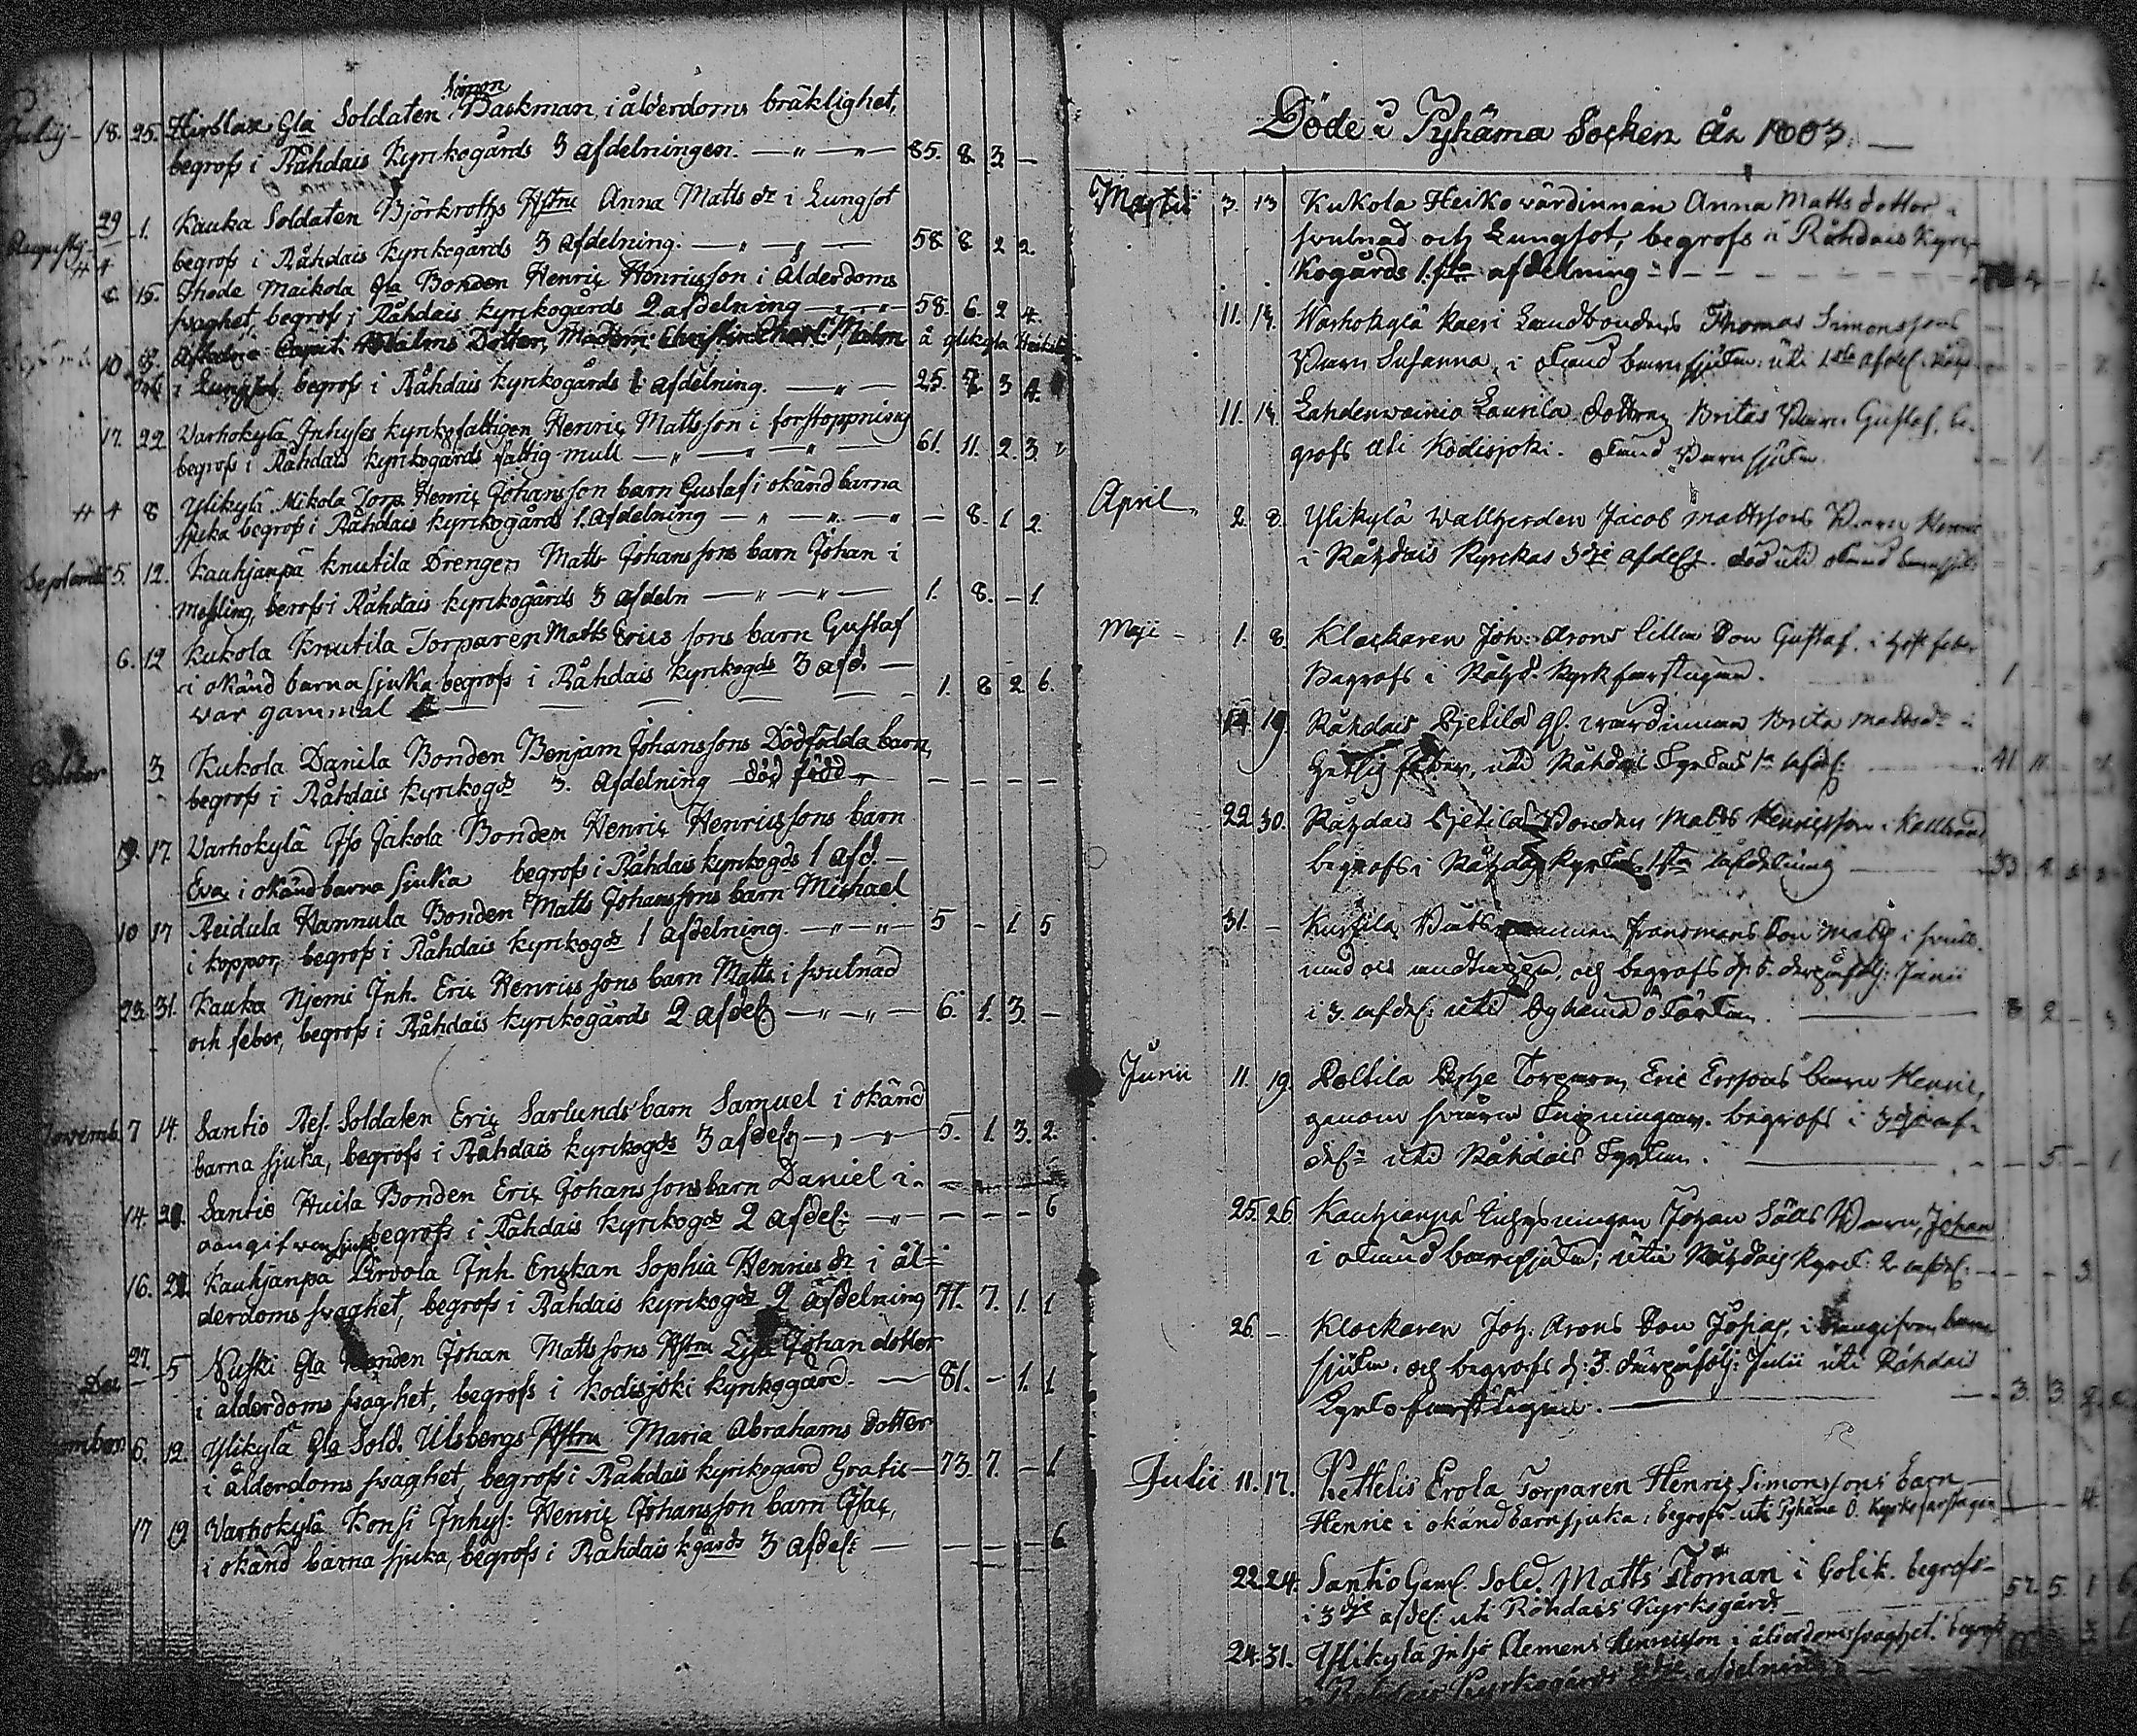 Julij - 18. 25. Hirslax Gla Soldaten Simon Backman, i ålderdoms bräklighet,
begrofs i Råhdais Kyrckogårds 3 afdelningen. — " — 85. 8. 3 —
Augusty 29 1. Kauka Soldaten Björkroths Hstru Anna Matts dr i Lungsot
begrofs i Råhdais Kyrckogårds 3 afdelning. — " — 58 8 2 2.
15. Ihode Maikola Gla Bonden Henric Henricsson i Ålderdoms
svaghet, begrofs i Råhdais kyrckogårds 2 afdelning — 58. 6. 2 4.
10. Capit. Malms Dotter, Madem: Christin Charl: Malm å ylikyla Heikila
i Lungsot, begrofs i Råhdais kyrckogårds 1 afdelning. — " — 25. 7. 3 4.
17. 22 Varhokylä Inhyses kyrckofattigen Henric Mattsson i forstoppning
begrofs i Råhdais kyrckogårds fattig mull — " — " — 61. 11. 2. 3.
4 8 Ylikylä Mikola Torp. Henric Johansson barn Gustaf i okänd barna
sjuka begrofs i Råhdais kyrckogårds 1. afdelning — " — " — 8. 1 2.
Septemb 5. 12. Kauhjanpä Knutila Drengen Matts Johanssons barn Johan i
Mesling, berofs i Råhdais kyrckogårds 3 afdeln — " — " — 1. 8. — 1.
6. 12 Kukola Knutila Torparen Matts Erics sons barn Gustaf
i okänd barnasjuka begrofs i Råhdais kyrckogds 3 afd. —
war gammal — — — — 1. 8 2 6.
October 3. Kukola Danila Bonden Benjam Johanssons Dödfödda barn,
begrofs i Råhdais kyrckogds 3. Afdelning död född — — — — —
17. Varhokylä Iso Jakola Bonden Henric Henricssons barn
Eva i okänd barna sjuka begrofs i Råhdais kyrckogds 1 afd. —
10 17 Reidula Hannula Bonden Matts Johanssons barn Michael
i koppor, begrofs i Råhdais kyrckogds 1 afdelning. — " — " — 5 — 1 5
23. 31. Kauka Njemi Inh. Eric Henrics sons barn Matts i svulnad
och feber, begrofs i Råhdais kyrckogårds 2 afdel — " — " — 6. 1. 3. —
Novemb. 7 14. Santio Ref. Soldaten Eric Sarlunds barn Samuel i okänd
barna sjuka, begrofs i Råhdais kyrckogds 3 afdel — " — " — 5. 1. 3. 2.
14. 21. Santio Huila Bonden Eric Johanssons barn Daniel i
oangifwen sjuk begrofs i Råhdais kyrckogds 2 afdel: — " — — — — 6
16. 21. Kauhjanpä Pirvola Inh. Enckan Sophia Henrics dr i ål-
derdoms svaghet, begrofs i Råhdais kyrckogds 2 afdelning 71. 7. 1. 1
Dec 27. 5 Nuski Gla Bonden Johan Mattssons Hstru Johan dotter
i ålderdoms svaghet, begrofs i Kodisjoki kyrckogård. — 81. — 1. 1
ember 6. 12. Ylikylä Gla Sold. Ulsbergs Hstru Maria Abrahams dotter
i ålderdoms svaghet, begrofs i Råhdais kyrckogård Gratis — 73. 7. — 1
17 19. Varhokylä Konsi Inhys: Henric Johansson barn Isac,
i okänd barna sjuka, begrofs i Råhdais kgårds 3 afdel: — — — — 6.
Döde i Pyhäma Socken År 1803. —
Martii 3. 13 Kukola Heiko värdinnan Anna Matts dotter i
svulnad och Lungsot, begrofs i Råhdais Kyrc-
kogårds 1.sta afdelning — — — 4 — 1.
11. 19. Warhokylä Kaeri Landbondens Thomas Simonssons
Barn Susanna, i okänd barnsjuka: uti 1sta afdel. Råhd.
11. 19. Lahdenwainio Laurila dottren Britas Barn Gustaf, be-
grofs uti Kodisjoki. okänd Barnsjuka. — 1 — 5
April 2. 8. Ylikylä Wallherden Jacob Mattssons Barn Henric
i Råhdais Kyrckas 3dje afdel. död uti okänd barnsjuk: — — — 5
Maji - 1. 8. Klockaren Joh: Arons lilla Son Gustaf. i hest feber
Begrofs i Råhd. Kyrkfarstugan. — 1 — —
14 19. Råhdais Kjetila gl. wärdinnan Brita Mattsdr i
Hettig feber, uti Råhdais Kyrckas 1sta afdel: — 41. 11. —
22. 30. Råhdais Kjetila Bonden Matts Henricsson i Kallbrand,
begrofs i Råhdais Kyrckas 1sta afdelning — 33 4
31. — Kustila Båtsmannen Fransmans Son Matts i svull-
nad och andtäppa, och begrofs d. 5. derpåfölj: Junii
i 3. afdel: uti Pyhämä Ö Kyrka. — 3 2 — 3
Junii 11. 19. Poltila Torparen, Eric Ersons barn Henric,
genom swåra begrofs i 3dje af-
del: uti Råhdais Kyrka. — — 5. — 1
25. 26 Kauhianpä Inhysningen Johan barn, Johan
i okänd barnsjuka; uti Råhdais Kyrck: 2 afdel: — — — 3.
26. — Klockaren Joh: Arons Son Josias, i oangifven barn
sjuka, och begrofs d: 3. därpåfölj: Julii uti Råhdais
Kyrkofarstugan. — 3. 3. 2.
Julii 11. 17. Kettelis Erola Torparen Henric Simonssons barn —
Henric i okänd barnsjuka; begrofs uti Pyhäma Ö. Kyrkofarstugan — — 4.
22. 24. Santio Gaml. Sold. Matts Flöman i Colik. begrofs
i 3dje afdel: uti Råhdais Kyrkogård — 57. 5. 1 6.
24. 31. Ylikylä Inhs Clemens Henricsson i ålderdomssvaghet. begrofs
i Råhdais Kyrkogårds afdelning —